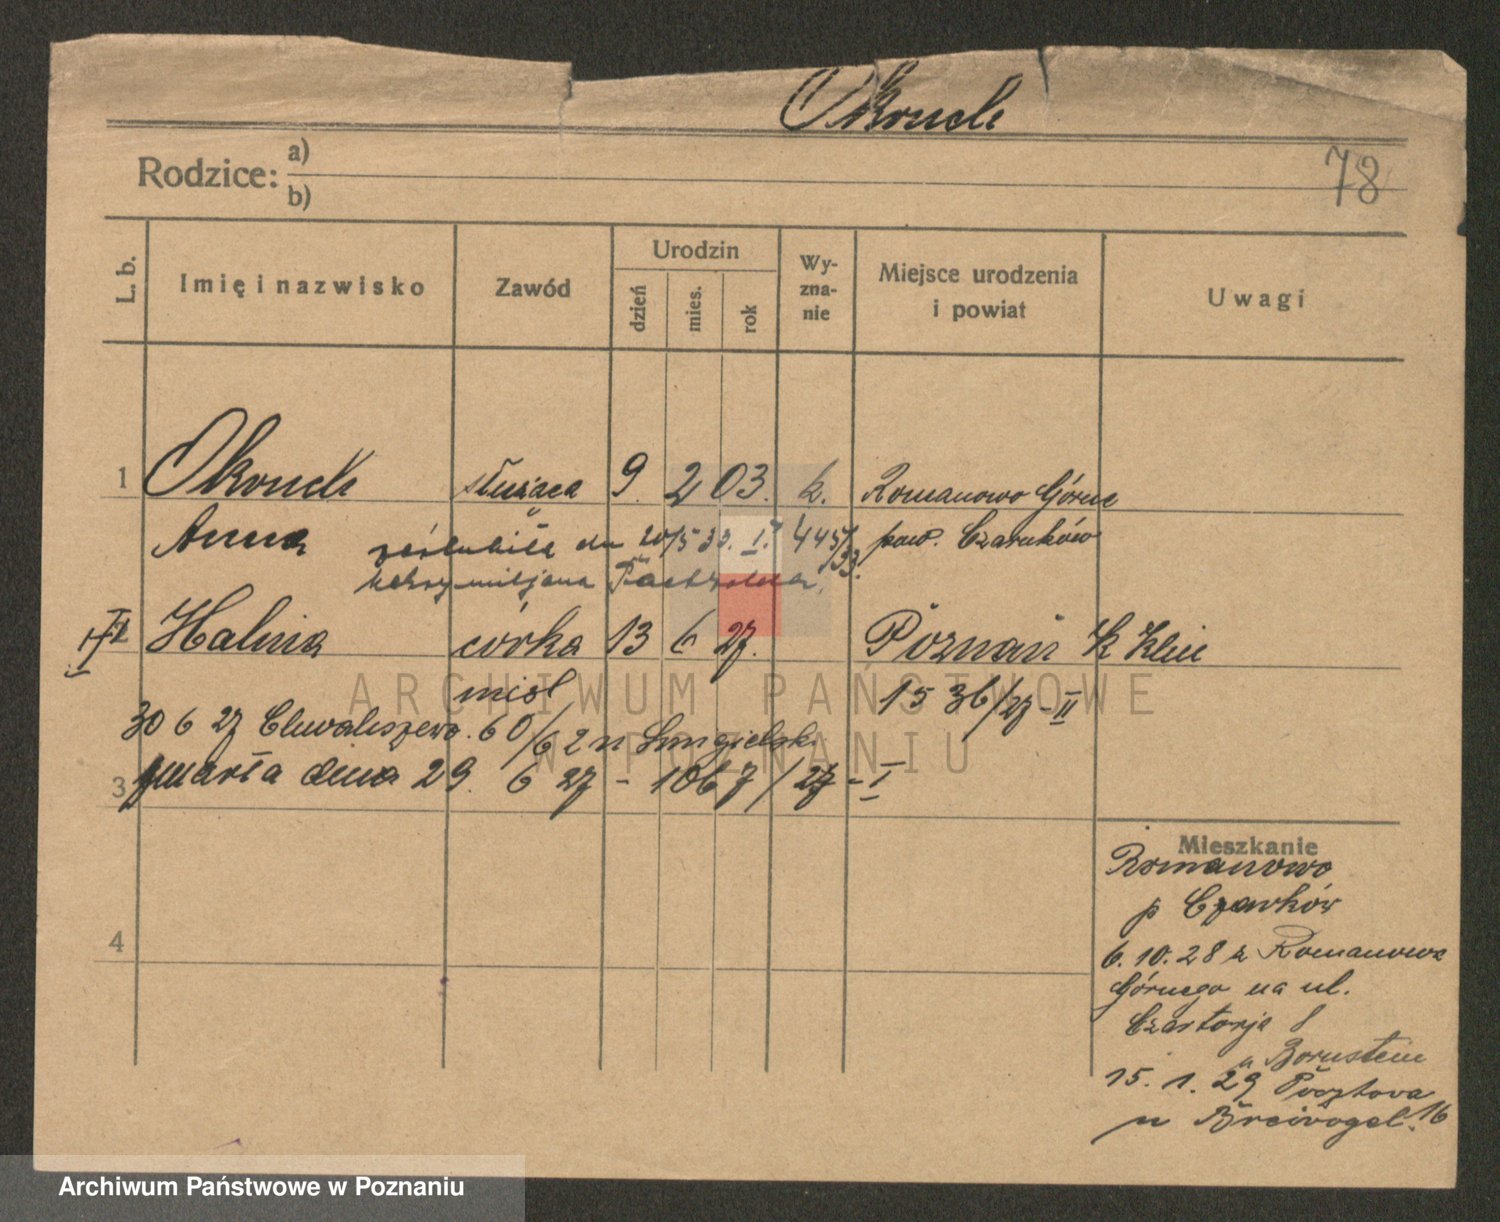 Okonek
78
Rodzice: a)
b)
L. b.
Imię i nazwisko
Zawód
Urodzin
dzień
mies.
rok
Wy-
zna-
nie
Miejsce urodzenia
i powiat
Uwagi
1 Okonek służąca 9. 2 03. k. Romanowo Górne
Anna zaślubiła dn 20/5 33. I. 445/33. pow. Czarnków
Halina córka 13 6 27. Poznań K Klin
nieśl 1536/27-II
30 6 27 Chwaliszewo. 60/62 u
3 zmarła dnia 29. 6 27 - 1067/27-I
ARCHIWUM PAŃSTWOWE
W POZNANIU
Mieszkanie
Romanowo
p Czarnków
4
6.10.28 z Romanowa
Górnego na ul.
Czartorja 8
u Bornstein
15. 1. 29 Pocztowa 16
u Breivogel.
Archiwum Państwowe w Poznaniu